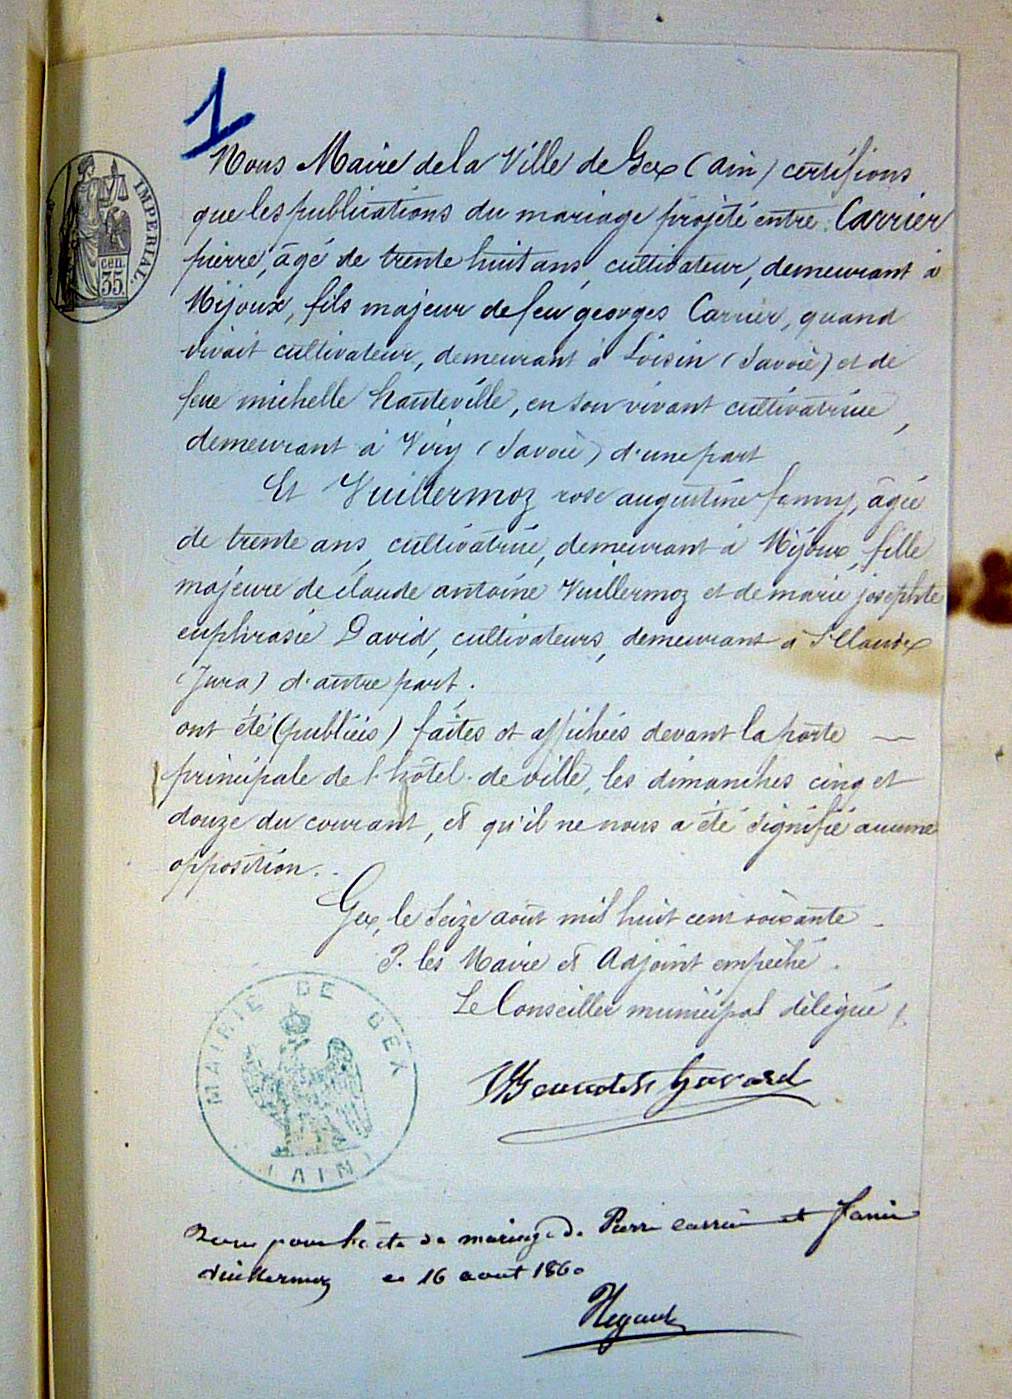 1
Nous Maire de la Ville de Gex (Ain) certifions
que les publications du mariage projeté entre Carrier
pierre, âgé de trente huit ans, cultivateur, demeurant à
Mijoux, fils majeur de feu georges Carrier, quand
vivait cultivateur, demeurant à Loisin (Savoie) et de
feue michelle hauteville, en son vivant cultivatrice,
demeurant à Viry (Savoie) d'une part
Et Vuillermoz rose augustine fanny, âgée
de trente ans, cultivatrice, demeurant à Mijoux, fille
majeure de claude antoine Vuillermoz et de marie josephte
euphrasie David, cultivateurs, demeurant à St Claude
(Jura) d'autre part.
ont été (publiées) faites et affichées devant la porte
principale de l'hôtel de ville, les dimanches cinq et
douze du courant, et qu'il ne nous a été signifié aucune
opposition.
Gex, le seize août mil huit cent soixante
P. les Maire et Adjoint empêché.
Le Conseiller municipal délégué
Gavard
pour de mariage de Pierre carrier et Fanie
vuillermoz ce 16 aout 1860
IMPERIAL.
cen.
35.
MAIRIE DE GEX
(AIN)